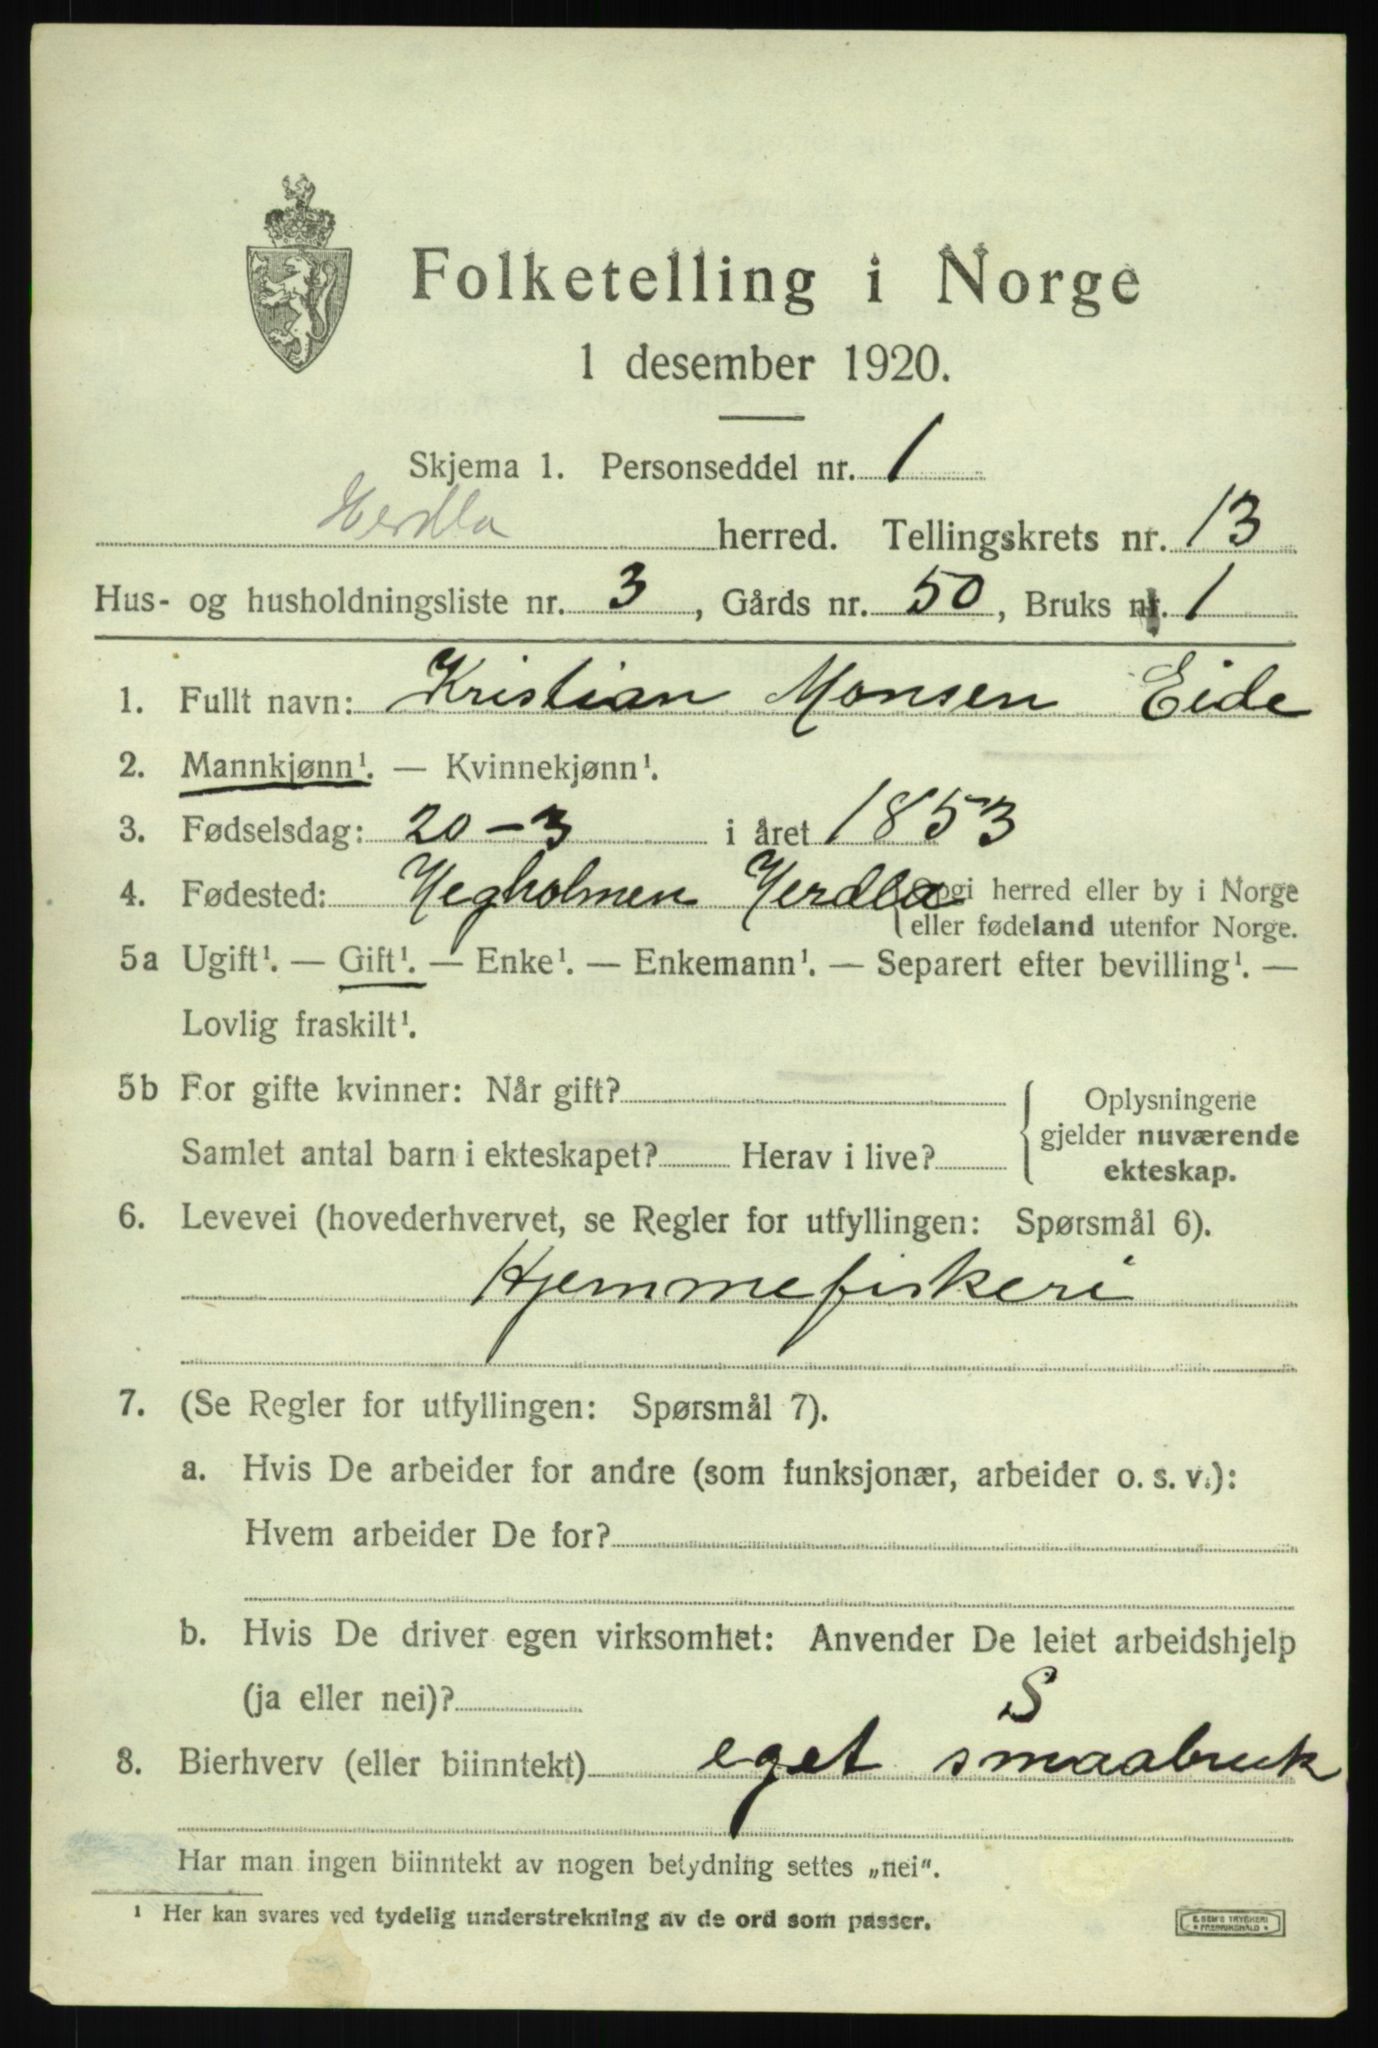 Folketelling i Norge
1 desember 1920.
Skjema 1. Personseddel nr. 1
Herdla herred. Tellingskrets nr. 13
Hus- og husholdningsliste nr. 3, Gårds nr. 50, Bruks nr. 1
1. Fullt navn: Kristian Monsen Eide
2. Mannkjønn¹. — Kvinnekjønn¹.
3. Fødselsdag: 20-3 i året 1853
4. Fødested: Hegholmen Herdla Opgi herred eller by i Norge
eller fødeland utenfor Norge.
5a Ugift¹. — Gift¹. — Enke¹. — Enkemann¹. — Separert efter bevilling¹. —
Lovlig fraskilt¹.
5b For gifte kvinner: Når gift? Oplysningene
gjelder nuværende
Samlet antal barn i ekteskapet? Herav i live?
ekteskap.
6. Levevei (hovederhvervet, se Regler for utfyllingen: Spørsmål 6).
Hjemmefiskeri
7. (Se Regler for utfyllingen: Spørsmål 7).
a. Hvis De arbeider for andre (som funksjonær, arbeider o. s. v.):
Hvem arbeider De for?
b. Hvis De driver egen virksomhet: Anvender De leiet arbeidshjelp
(ja eller nei)? S
8. Bierhverv (eller biinntekt) eget smaabruk
Har man ingen biinntekt av nogen betydning settes „nei“.
¹ Her kan svares ved tydelig understrekning av de ord som passer.
E. SEM'S TRYKKERI
* FREDRIKSHALD *